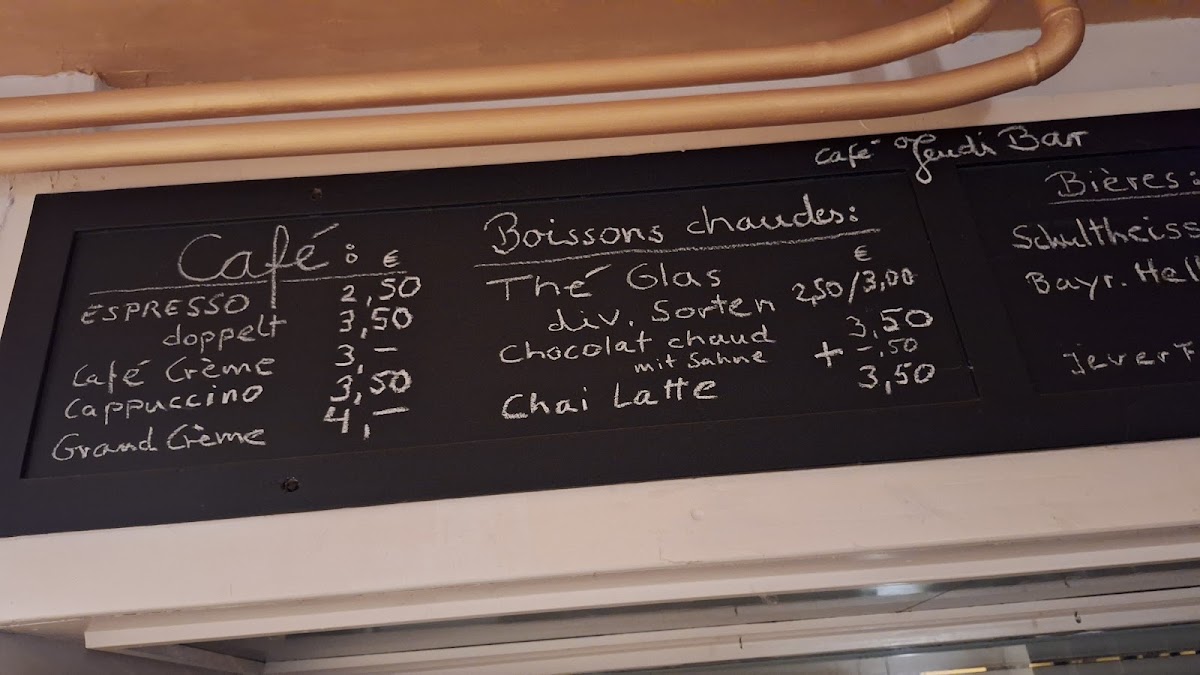 Café Jeudi Bar
Café: €
ESPRESSO 2,50
doppelt 3,50
Café Crème 3,-
Cappuccino 3,50
Grand Crème 4,-
Boissons chaudes:
€
Thé Glas
div. Sorten 2,50/3,00
Chocolat chaud 3,50
mit Sahne + -,50
Chai Latte 3,50
Bières:
Schultheiss
Bayr. Hell
Jever F